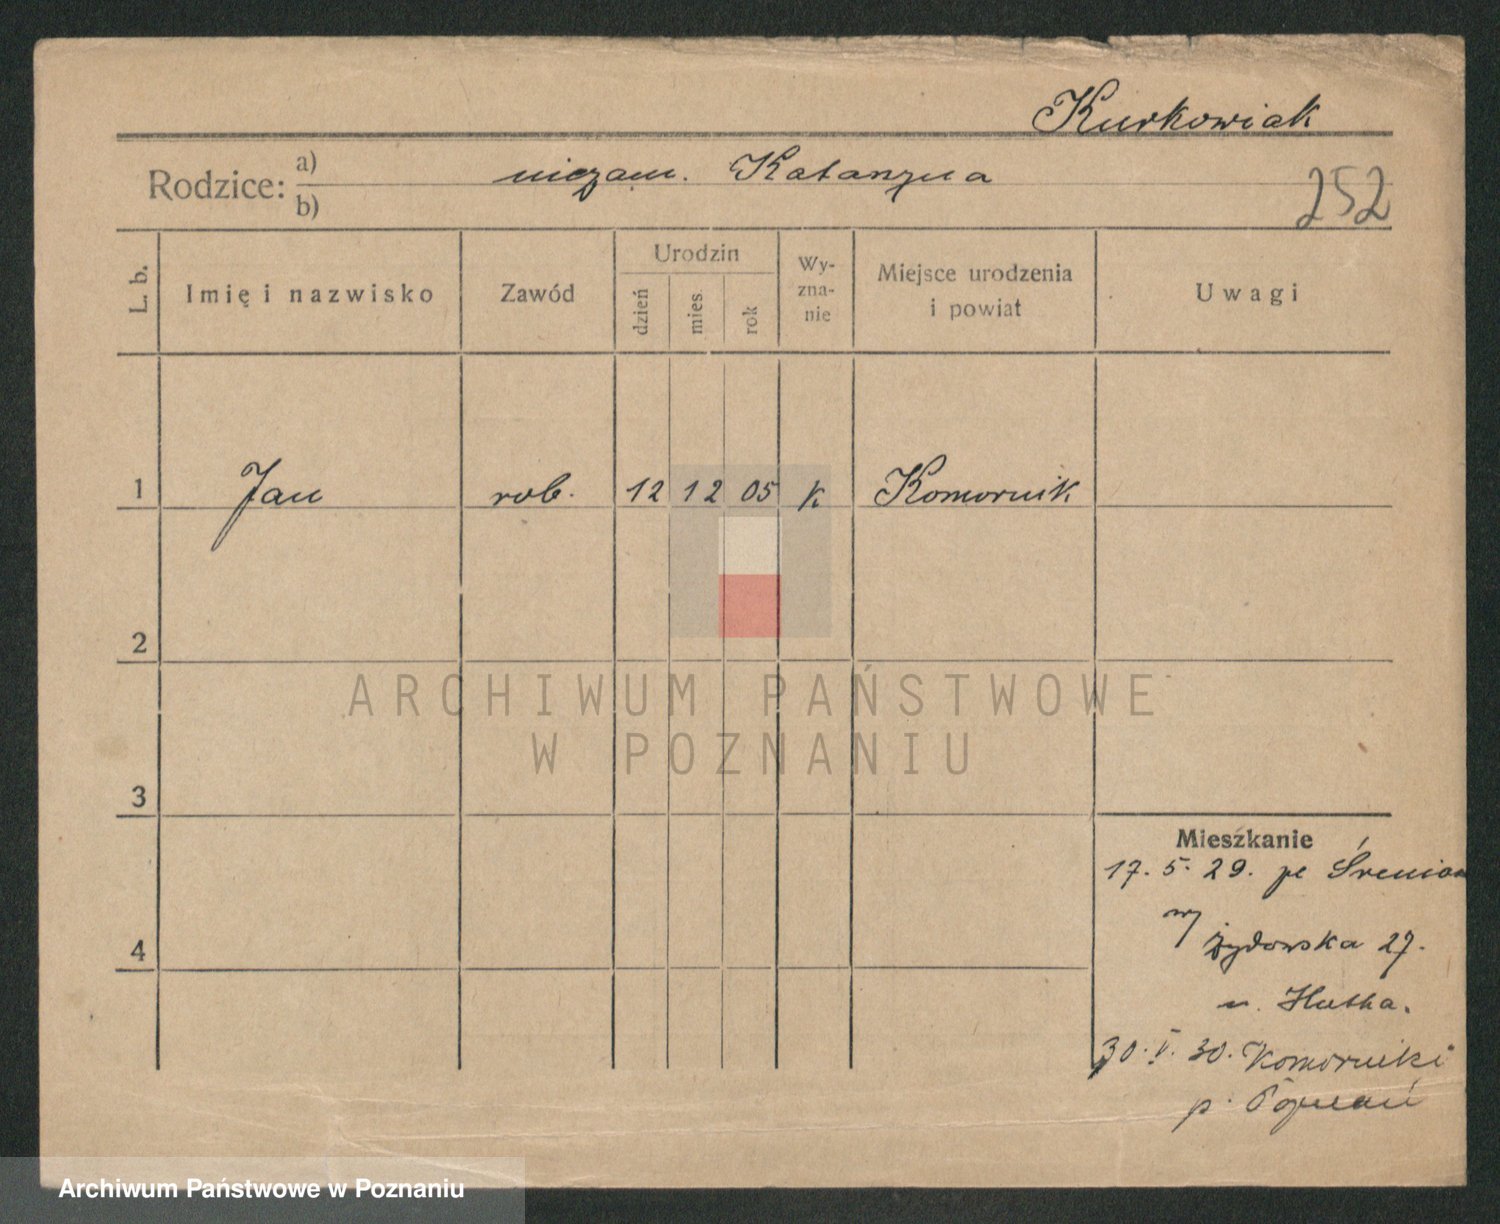 Kurkowiak
Rodzice: a) niezam. Katarzyna
b)
252
L. b. Imię i nazwisko Zawód Urodzin dzień mies. rok Wy-zna-nie Miejsce urodzenia i powiat Uwagi
1 Jan rob. 12 12 05 k Komornik
2
ARCHIWUM PAŃSTWOWE
W POZNANIU
3
Mieszkanie
17. 5. 29. ze Śremian
w/
4 Żydowska 27.
u. Hutha.
30. V. 30. Komorniki
p. Poznań
Archiwum Państwowe w Poznaniu